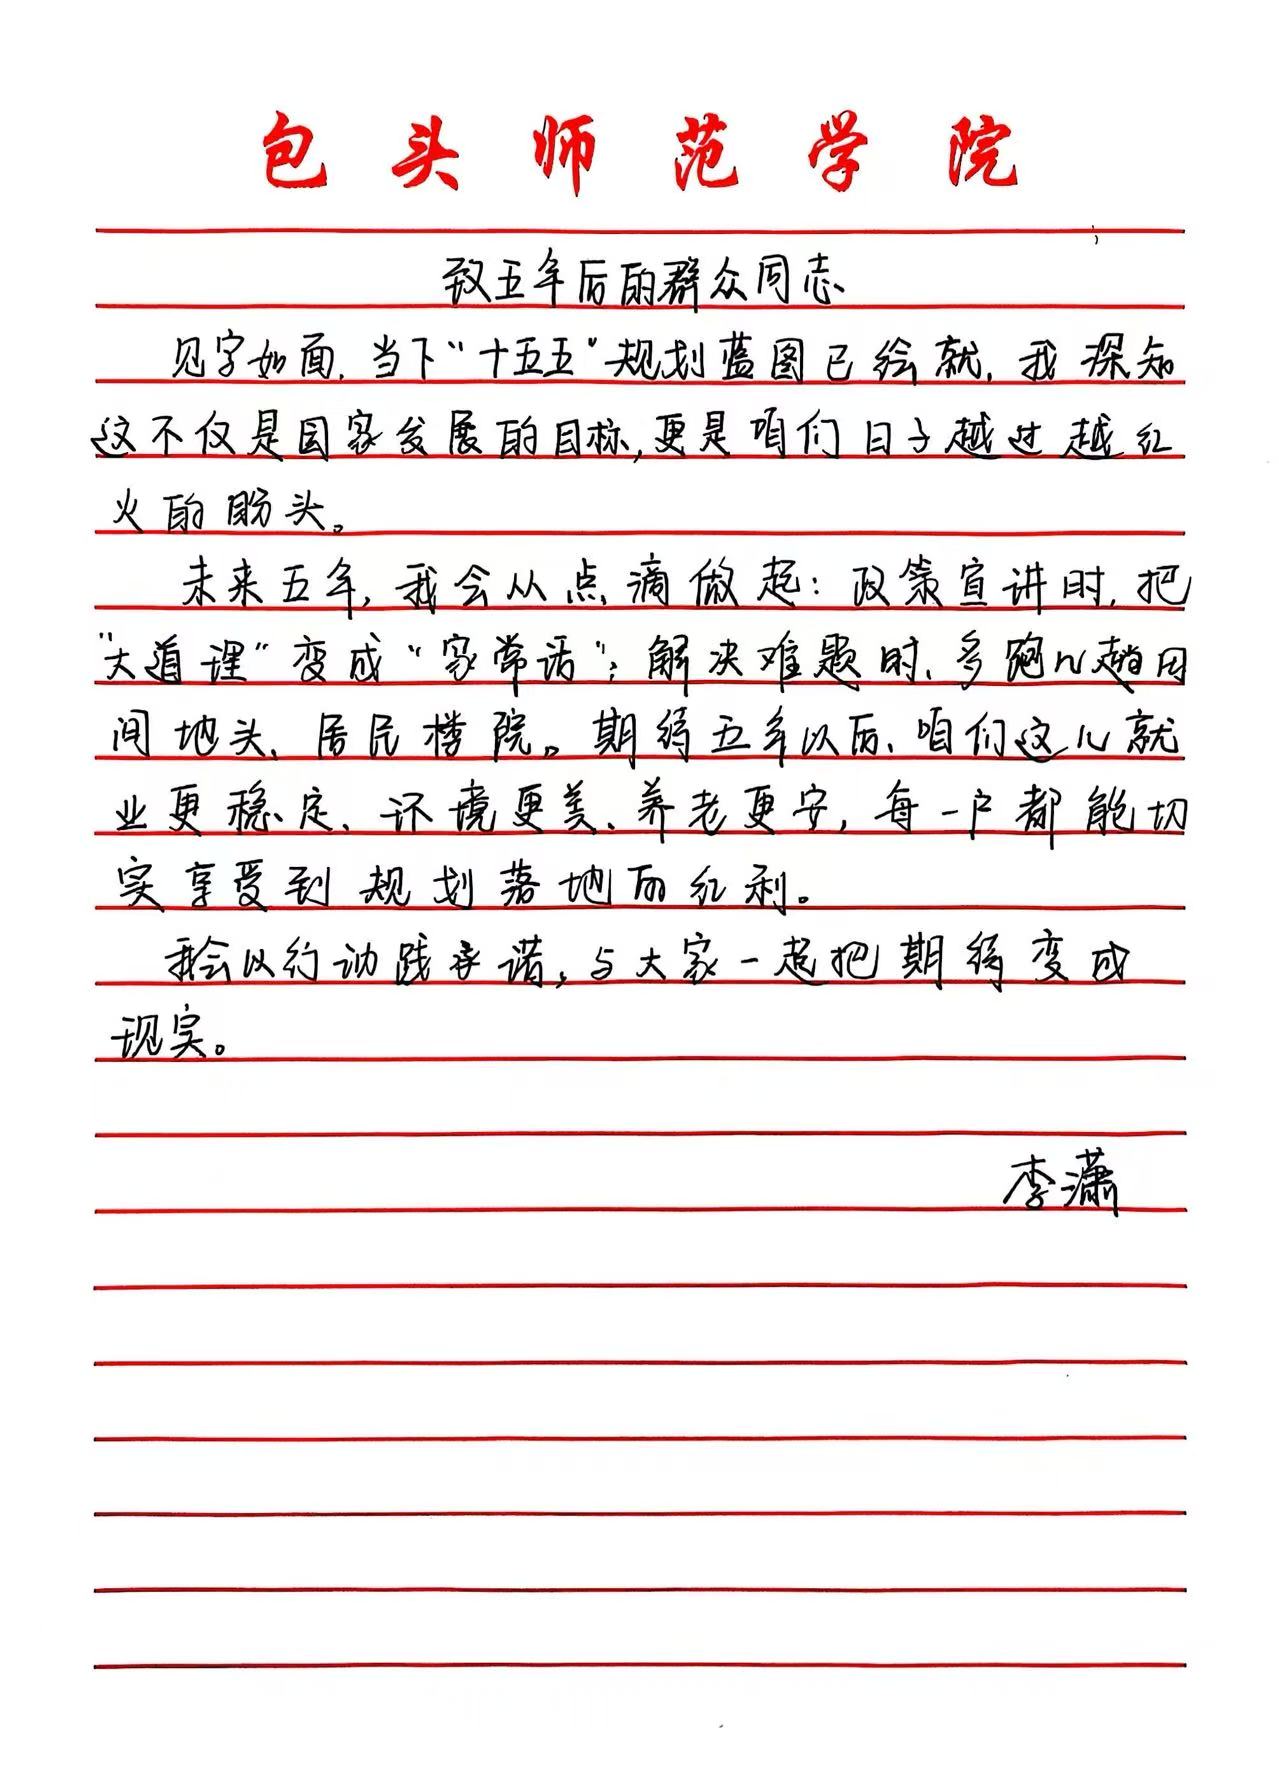 包头师范学院
致五年后的群众同志
见字如面,当下“十五五”规划蓝图已绘就,我深知
这不仅是国家发展的目标,更是咱们日子越过越红
火的盼头。
未来五年,我会从点滴做起:政策宣讲时,把
“大道理”变成“家常话”;解决难题时、多跑几趟田
间地头、居民楼院。期待五年以后、咱们这儿就
业更稳定、环境更美、养老更安,每一户都能切
实享受到规划落地的红利。
我会以行动践承诺,与大家一起把期待变成
现实。
李潇